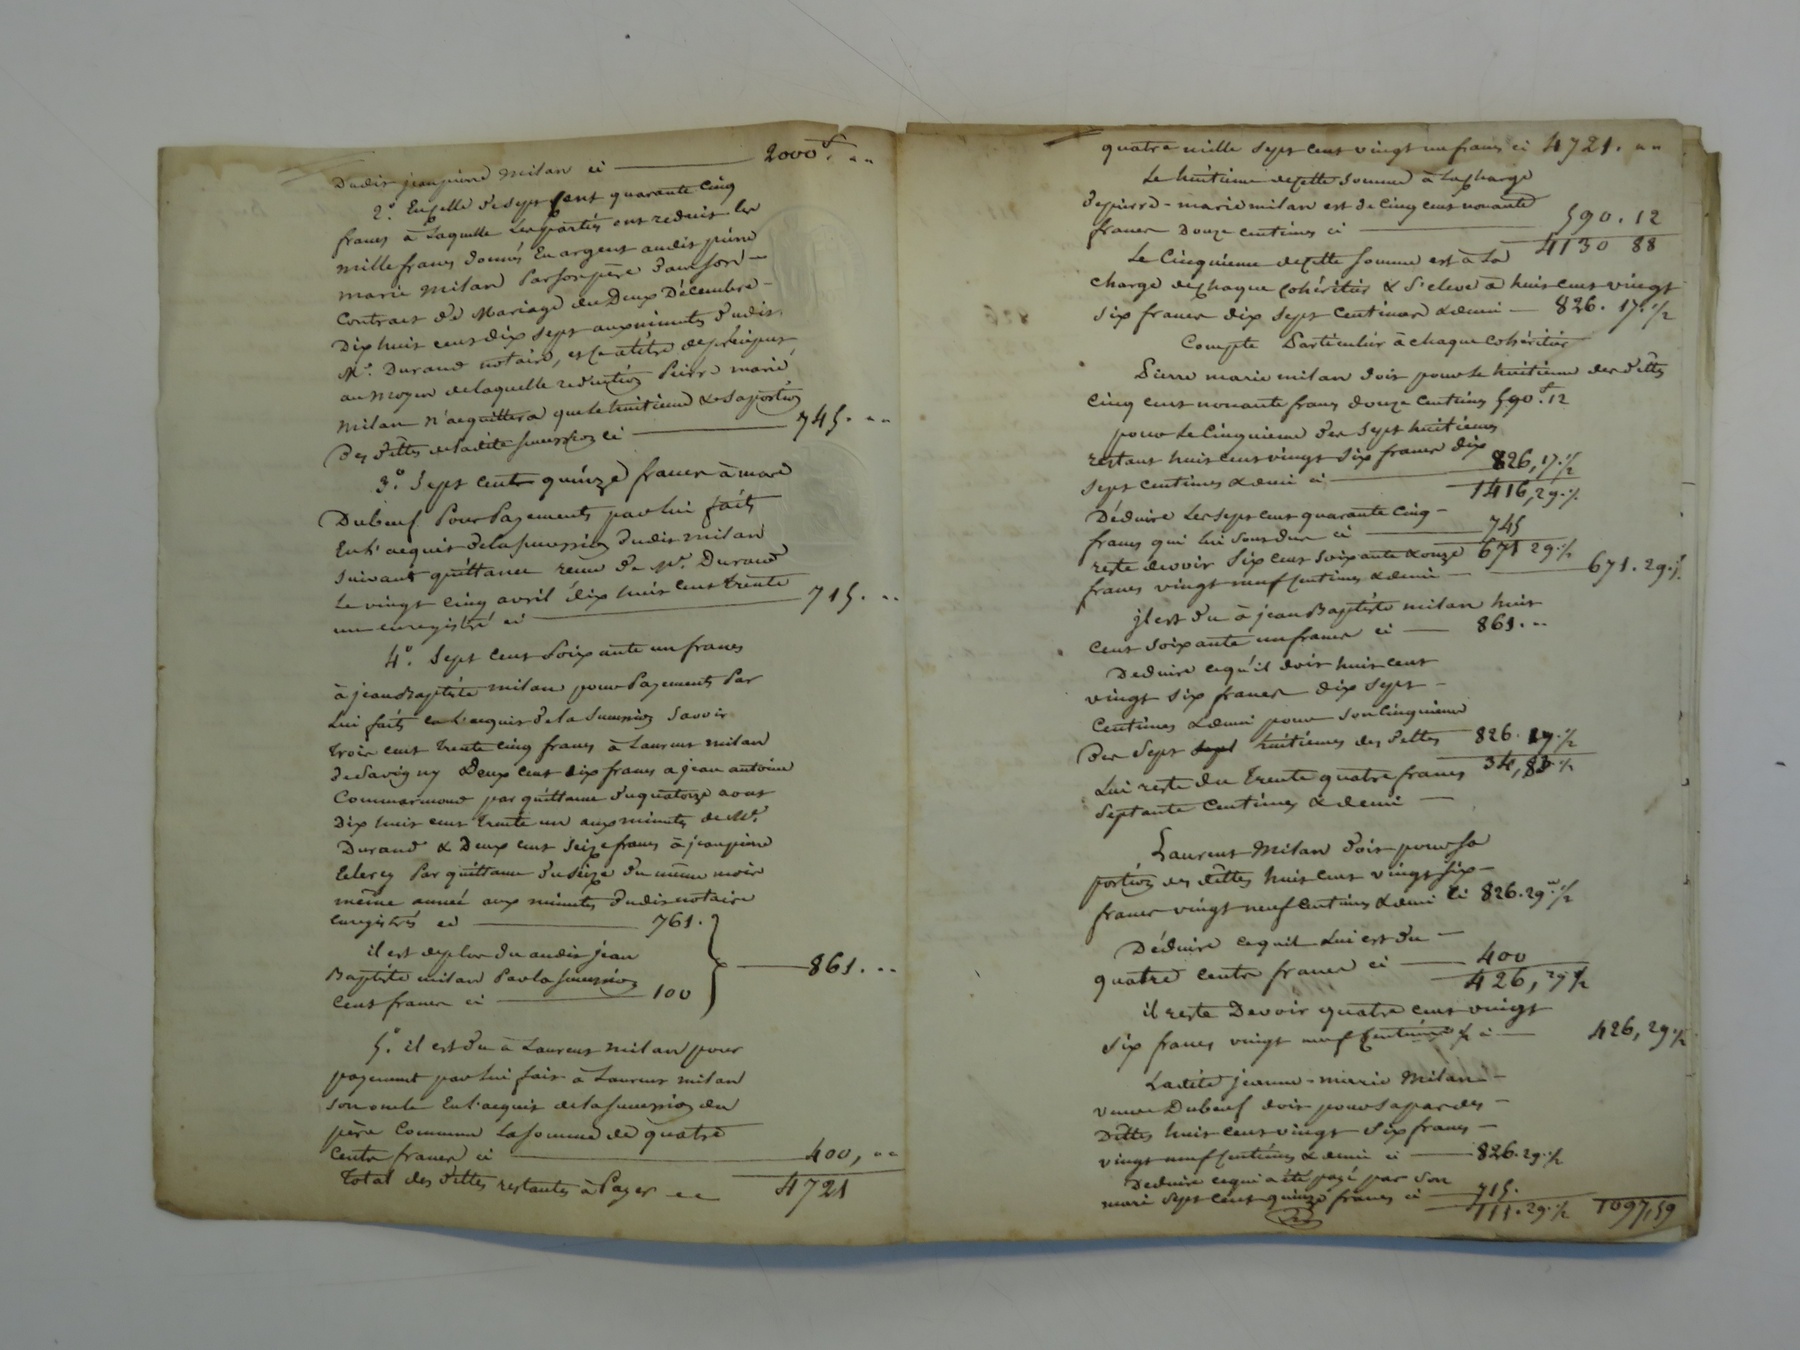 Dudit jean pierre Milan ci 2000f. ..
2º. En celle de sept cent quarante cinq
francs à laquelle les parties ont reduit les
mille francs donnés en argent audit pierre
marie Milan par son père dans son
contract de Mariage du Deux Décembre
Dix huit cent dix sept aux minutes dudit
Mº. Durand notaire, et ce a titre de préciput
au moyen de laquelle reduction Pierre marie
Milan n'acquittera que le huitieme & sa portion
Des dêttes de ladite succession ci 745. ..
3º. Sept cents quinze francs à marc
Dubeuf Pour Payements par lui faits
En l'acquit de la succession dudit milan
suivant quittance recue de Mº. Durand
Le vingt cinq avril dix huit cent trente
un enregistré ci 715. ..
4º. Sept cent soixante un francs
à jean Baptiste milan pour Payements Par
Lui faits en l'acquis de la succession savoir
trois cent trente cinq francs à Laurent milan
de Savigny Deux cent dix francs a jean antoine
Commarmond par quittance du quatorze aout
Dix huit cent trente un aux minutes de Mº.
Durand & Deux cent seize francs à jean pierre
Par quittance du seize du même mois
même année aux minutes dudit notaire
Enregistrés ci 761.
il est de plus du audit jean
Baptiste milan Par la succession
Cent francs ci 100
861. ..
5º. il est du à Laurent Milan pour
payement par lui fait à Laurent milan
son oncle En l'acquit de la succession du
père commun La somme de quatre
Cents francs ci 400, ..
Total des dêttes restantes à Payer 4721
quatre mille sept cent vingt un francs ci 4721. ..
Le huitieme de cette somme à la charge
de pierre-marie milan est de cinq cent nonante
francs Douze centimes ci 590.12
4130 88
Le Cinquieme de cette somme est à la
charge de chaque cohéritier & s'eleve à huit cent vingt
six francs dix sept centimes & demi 826. 17.½
Compte Particulier à chaque Cohéritier
Pierre marie milan doit pour le huitieme des dêttes
Cinq cent nonante francs douze centimes 590f.12
pour le Cinquieme des sept huitiemes
restant huit cent vingt six francs dix
sept centimes & demi ci 826,17.½
1416,29.½
Déduire les sept cent quarante cinq
francs qui lui sont dus ci 745
reste devoir six cent soixante & onze 671 29.½
francs vingt neuf centimes & demi 671.29.½
il est du à jean Baptiste milan huit
cent soixante un francs ci 861. ..
Deduire ce qu'il doit huit cent
vingt six francs dix sept
Centimes & demi pour son cinquieme
Des sept sept huitiemes des dettes 826.
Lui reste du trente quatre francs 34,
septante centimes & demi
Laurent Milan doit pour sa
portion des dêttes huit cent vingt six
francs vingt neuf centimes & demi ci 826.29.½
Déduire ce qui lui est du
quatre cents francs ci 400
426, 29 ½
il reste Devoir quatre cent vingt
six francs vingt neuf centimes ½ ci 426, 29.½
Ladite jeanne-marie Milan
veuve Dubeuf doit pour sa part des
Dêttes huit cent vingt six francs
vingt neuf centimes & demi ci 826.29.½
Deduire ce qui a été payé par son
mari sept cent quinze francs ci 715.
111.29.½ 1097,59